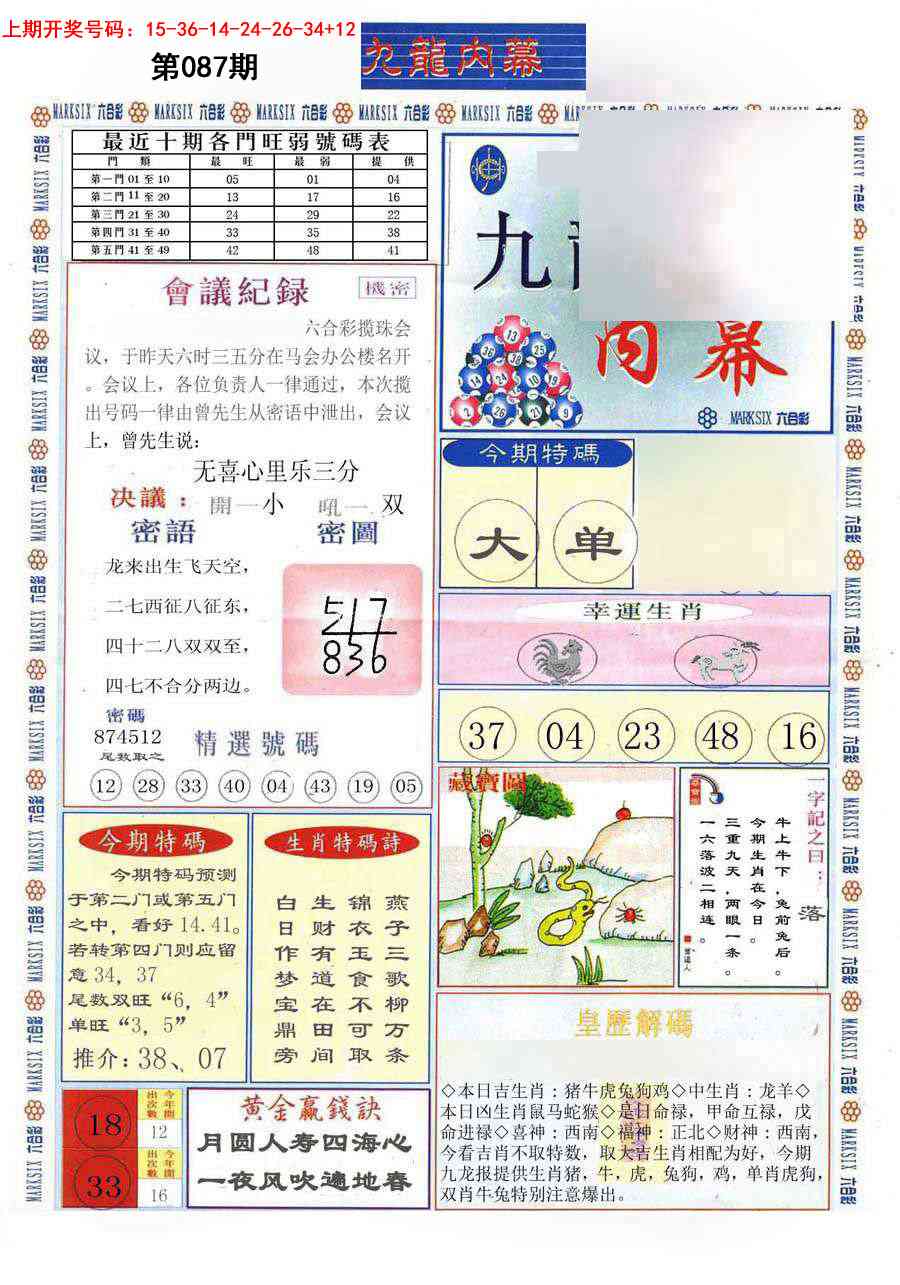 上期开奖号码：15-36-14-24-26-34+12
第087期
九龍内幕
MARKSIX 六合彩
最近十期各門旺弱號碼表
門 類 最 旺 最 弱 提 供
第一門 01 至 10 05 01 04
第二門 11 至 20 13 17 16
第三門 21 至 30 24 29 22
第四門 31 至 40 33 35 38
第五門 41 至 49 42 48 41
會議紀録
機密
六合彩搅珠会
议，于昨天六时三五分在马会办公楼名开
。会议上，各位负责人一律通过，本次搅
出号码一律由曾先生从密语中泄出，会议
上，曾先生说：
无喜心里乐三分
决議：開一小 吼一双
密語 密圖
龙来出生飞天空，
二七西征八征东，
四十二八双双至，
四七不合分两边。
517
836
密碼
874512
尾数取之
精選號碼
12 28 33 40 04 43 19 05
九
内幕
13
36 38 25
14 24 10 19
2 26 21 9
MARKSIX 六合彩
今期特碼
大 单
幸運生肖
37 04 23 48 16
藏寶圖
一字記之曰：落
牛上牛下，兔前兔后。
今期生肖在今日。
三重九天，两眼一条。
一六落波二相连。
今期特碼
今期特码预测
于第二门或第五门
之中，看好 14.41。
若转第四门则应留
意 34，37
尾数双旺“6，4”
单旺“3，5”
推介：38、07
生肖特碼詩
燕子三歌柳万条
锦衣玉食不可取
生财有道在田间
白日作梦宝鼎旁
18
今年開出次數
12
33
今年開出次數
16
黄金赢錢訣
月圆人寿四海心
一夜风吹遍地春
皇歷解碼
◇本日吉生肖：猪牛虎兔狗鸡◇中生肖：龙羊◇
本日凶生肖鼠马蛇猴◇是日命禄，甲命互禄，戊
命进禄◇喜神：西南◇福神：正北◇财神：西南，
今看吉肖不取特数，取大吉生肖相配为好，今期
九龙报提供生肖猪，牛，虎，兔狗，鸡，单肖虎狗，
双肖牛兔特别注意爆出。